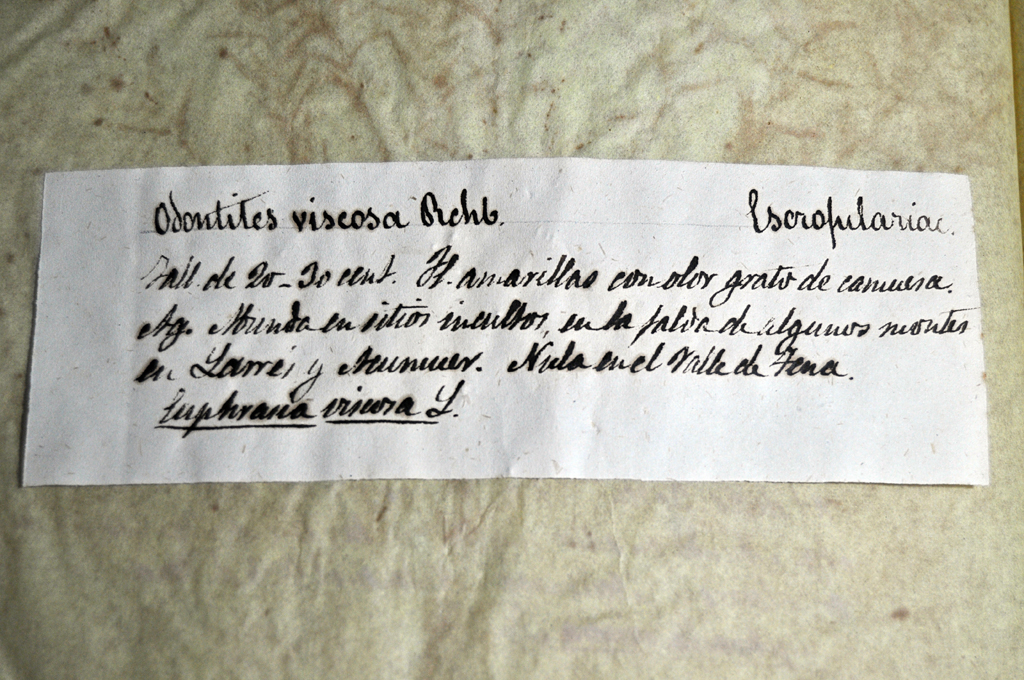 Odontites viscosa Rchb. Escrofulariac.
Tall. de 20-30 cent. Fl. amarillas con olor grato de camuesa.
Ag. Abunda en sitios incultos, en la falda de algunos montes
en Larrés y Acumuer. Nula en el Valle de Tena.
Euphrasia viscosa L.